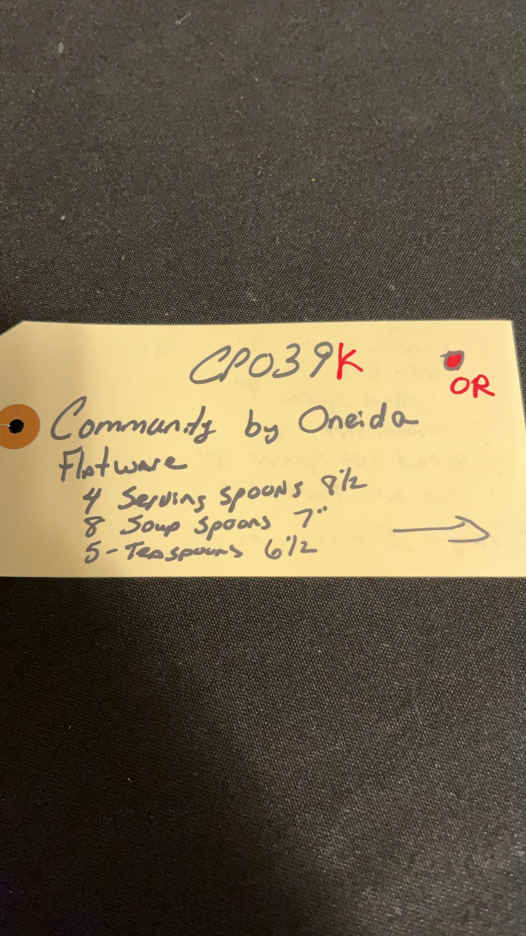 CP039K
OR
Community by Oneida
Flatware
4 Serving Spoons 8 1/2
8 Soup Spoons 7"
5 - Teaspoons 6 1/2